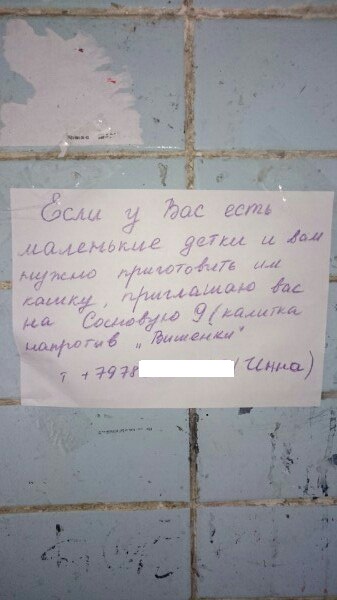 Если у Вас есть
маленькие детки и вам
нужно приготовить им
кашку, приглашаю вас
на Сосновую 9 (калитка
напротив „Вишенки"
т +7978 (Инна)